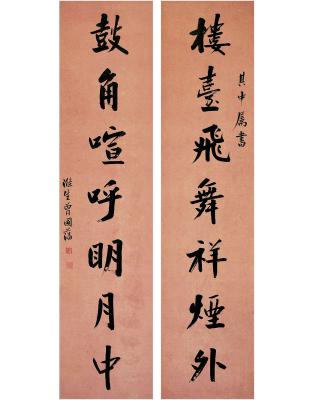 樓臺飛舞祥煙外
其中属書
鼓角喧呼明月中
滌生曾國藩